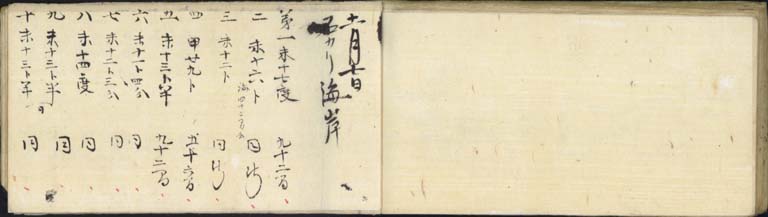 石カリ海岸
第一 未十七度 九十二間
二 未十六ト 同断
三 未十二ト 同断
四 甲廿九ト 五十六間
五 未十三ト半 九十二間
六 未十一ト四分 同
七 未十二ト三分 同
八 未十四度 同
九 未十三ト半 同
十 未十三ト半 同